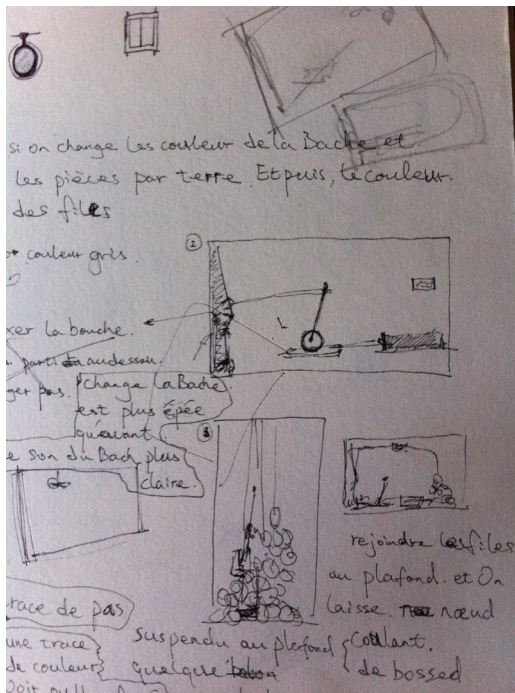 si on change les couleur de la Bache et
les pièces par terre. Et puis, le couleur.
des files
couleur gris.
②
xer la bouche.
parti audessou.
ger pas.
change la Bache
est plus épée
qu'avant
e son du Bach plus
claire.
③
rejoindre les files
au plafond. et On
laisse. nœud
coulant.
de bossed
trace de pas
une trace
de couleur
suspendu au plafond
quelque